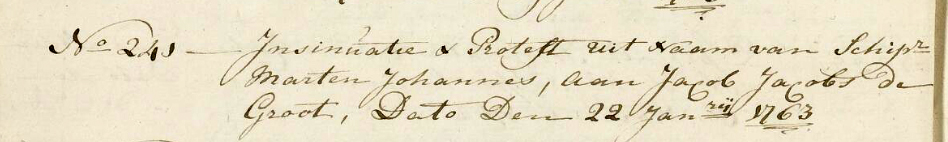 No 241 — Insinuatie & Protest uit Naam van Schipr
Marten Johannes, aan Jacob Jacobs de
Groot, Dato Den 22 Janrij 1763